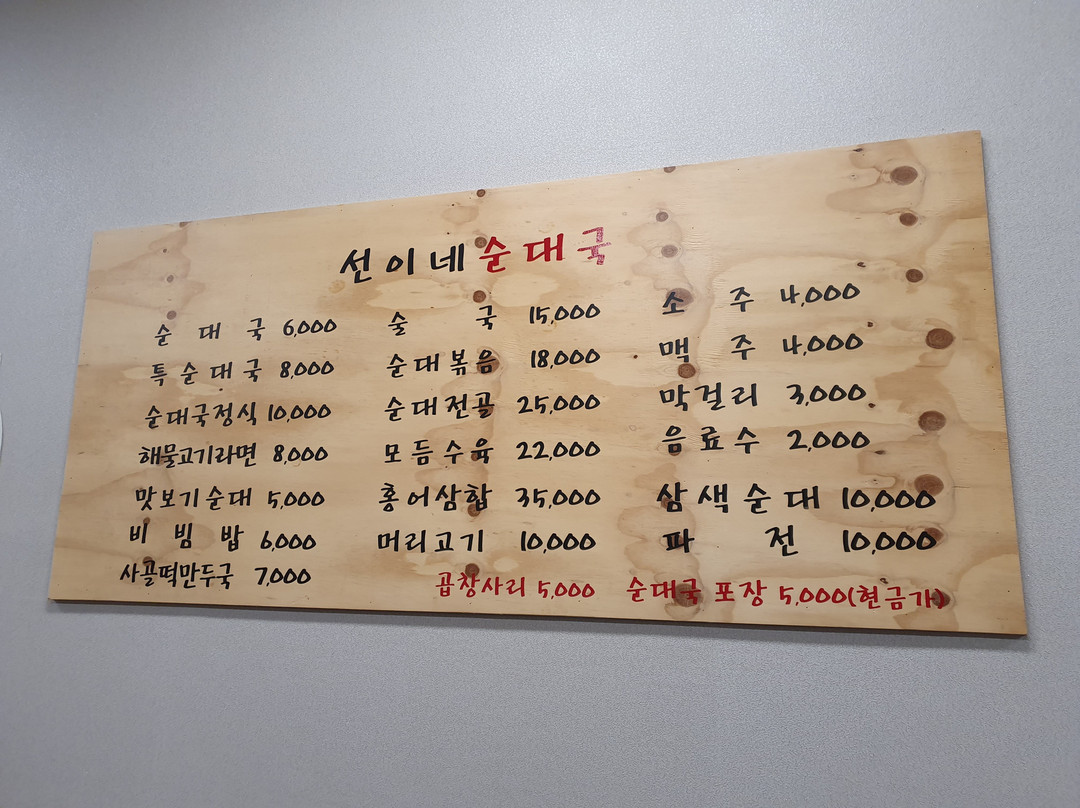 선이네순대국
순대국 6,000
특순대국 8,000
순대국정식 10,000
해물고기라면 8,000
맛보기순대 5,000
비빔밥 6,000
사골떡만두국 7,000
술국 15,000
순대볶음 18,000
순대전골 25,000
모듬수육 22,000
홍어삼합 35,000
머리고기 10,000
곱창사리 5,000
소주 4,000
맥주 4,000
막걸리 3,000
음료수 2,000
삼색순대 10,000
파전 10,000
순대국 포장 5,000(현금가)